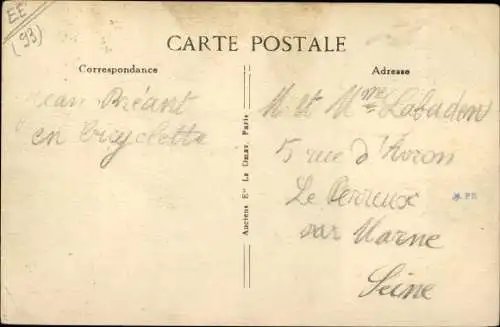 EE
(93)
CARTE POSTALE
Correspondance
Adresse
Jean Bréant
en bicyclette
Anciens Etts Le Deley, Paris
M. et Mme Labaden
5 rue d'Avron
Le Perreux
sur Marne
Seine